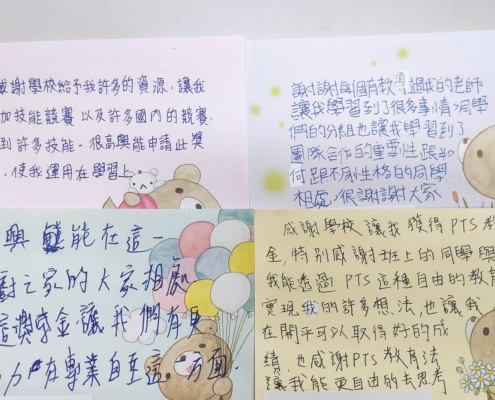 感謝學校給予我許多的資源,讓我
加技能競賽以及許多國內的競賽,
到許多技能。很高興能申請此獎
,使我運用在學習上
謝謝每個有教導過我的老師
讓我學習到了很多事情,同學
們的分組也讓我學習到了
團隊合作的重要性跟如
何跟不同性格的同學
相處,很謝謝大家
興 能在這一
廚之家的大家相處
這獎金讓我們有更
力戶在專業自主這一方面.
感謝學校讓我獲得PTS教
金,特別感謝班上的同學與
我能透過PTS這種自由的教育
實現我的許多想法,也讓我
在開平可以取得好的成
績,也感謝PTS教育法
讓我能更自由的去思考